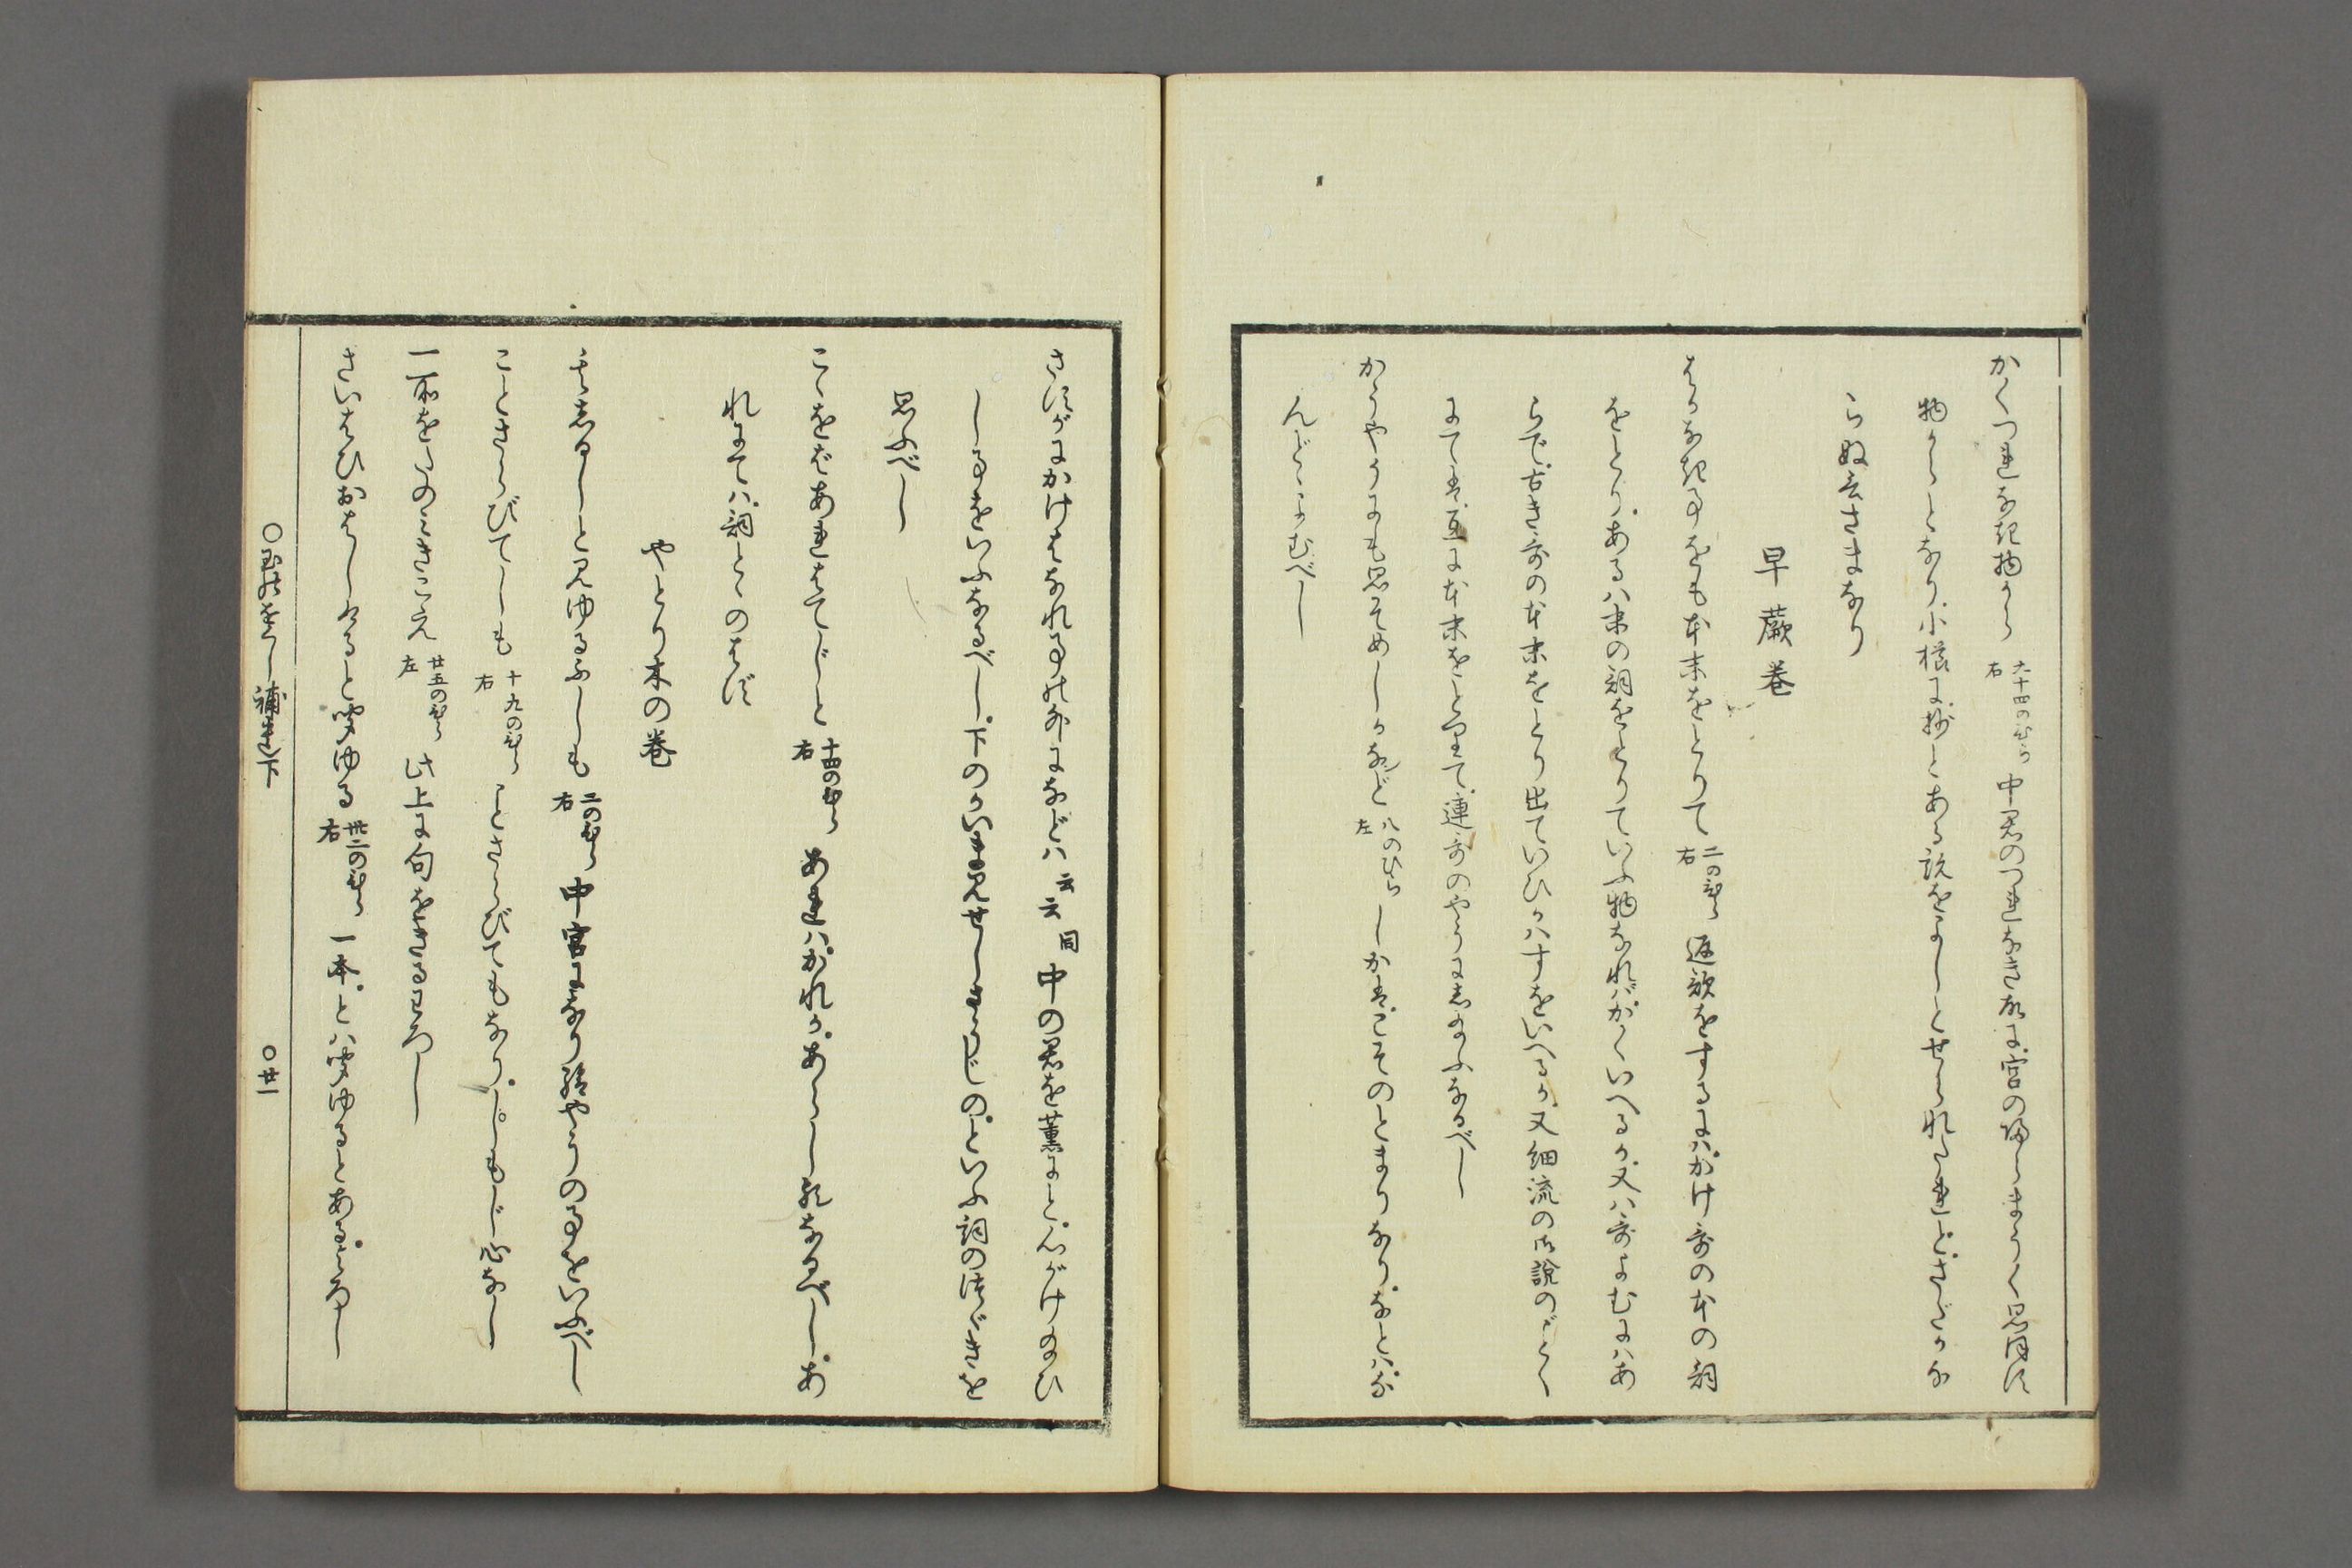 かくつれなき物から 六十四のひら右 中君のつれなき故に宮の帰らまうく思召す
物からとなり、小櫛に、抄とある説をよしとせられたれど、さだかな
らぬ云さまなり
早蕨巻
はかなき事をも本末をとりて 二のひら右 返歌をするには、かけ哥の本の詞
をとり、あるは末の詞をとりていふ物なれば、かくいへるか、又は哥よむにはあ
らで、古き哥の本末をとり出ていひかはすをいへるか、又細流の御説のごとく
にては、互に本末をとりて、連哥のやうにし給ふなるべし
かうやうにも思そめしかなど 八のひら左 しかば、こそのとまりなり、などは、な
んど、とよむべし
さすがにかけはなれ事の外になどは 云云 同 中の君を薫にと、心がけ給ひ
し事をいふなるべし、下のかいま見せしさうじの、といふ詞のつゞきを
思ふべし
こゝをばあれはてじと 十四のひら右 あれは、かれか、あらし歟なるべし、あ
れにては、詞とゝのはず
やとり木の巻
そしるしと見ゆるふしも 二のひら右 中宮になり給やうの事をいふべし
ことさらびてしも 十九のひら右 ことさらびてもなり、しもじ心なし
一所をたのみきこえ 廿五のひら左 此上に句をきるわろし
さいはひおはしけると聞ゆる 卅二のひら右 一本、とは聞ゆるとある、よろし
○玉の小くし補遺下
○廿一